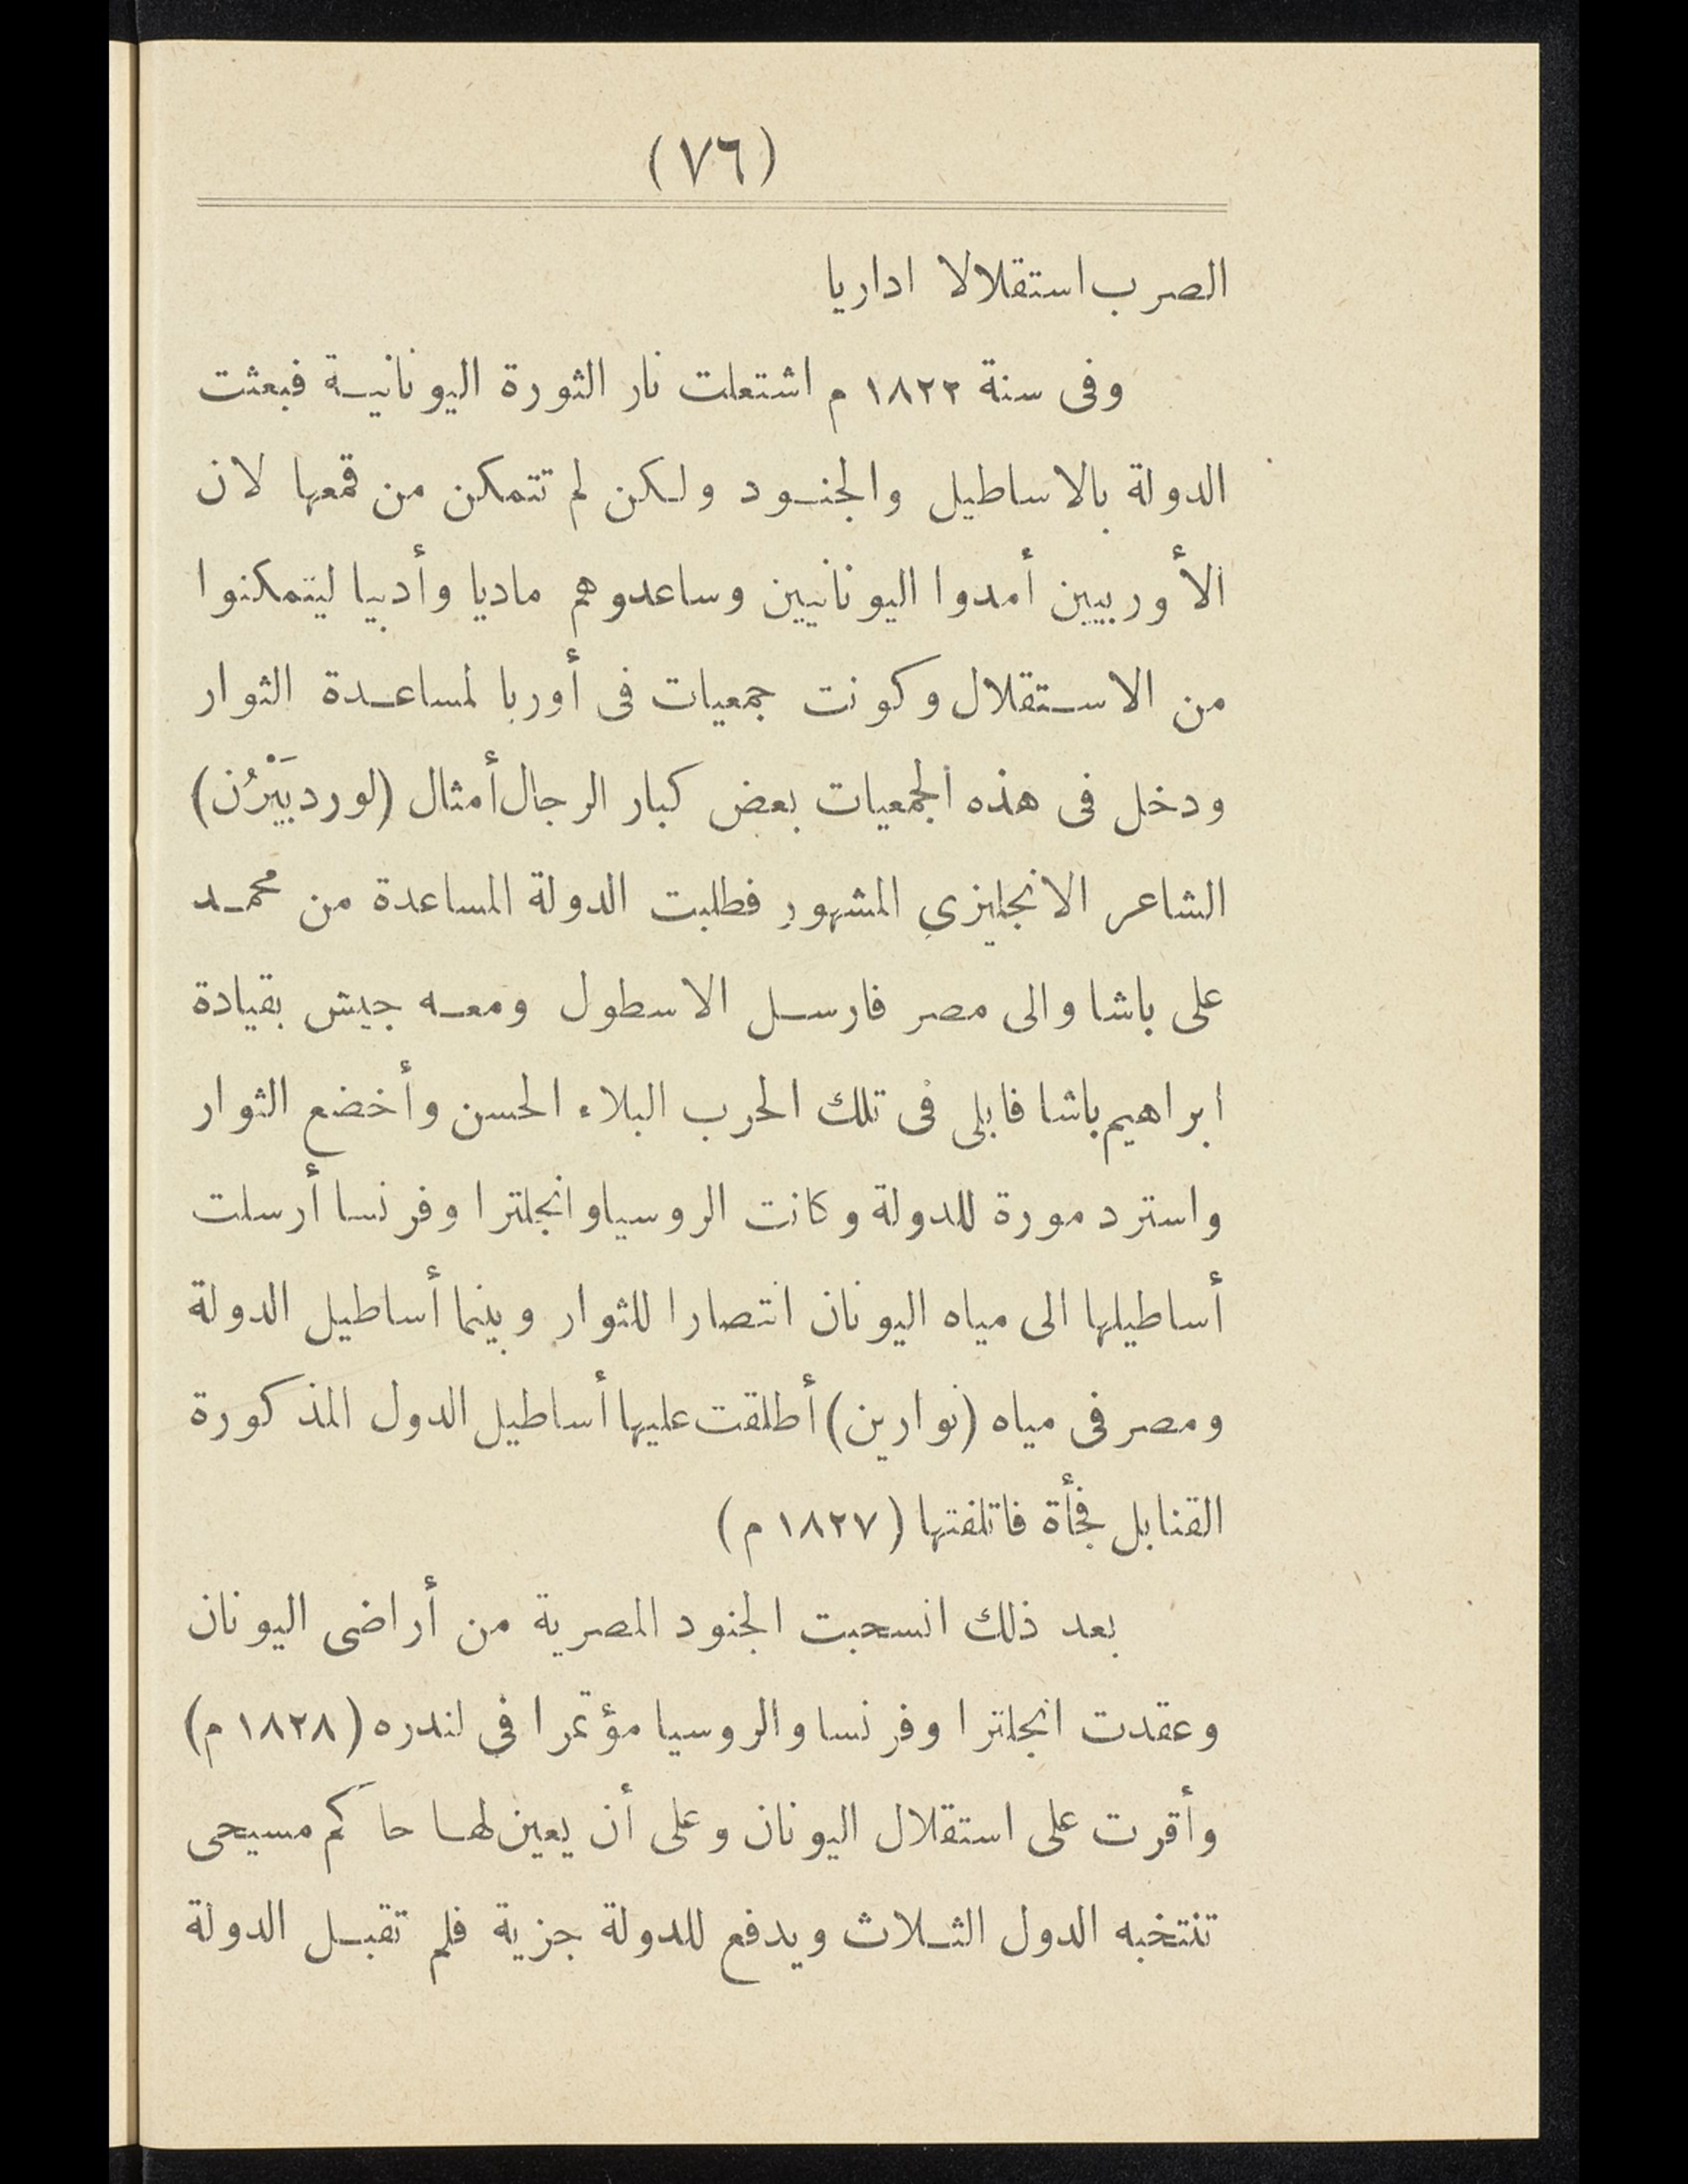 (٧٦)
الصرب استقلالا اداريا
وفى سنة ١٨٢٢ م اشتعلت نار الثورة اليونانية فبعثت
الدولة بالاساطيل والجنود ولكن لم تتمكن من قمعها لان
الأوربيين أمدوا اليونانيين وساعدوهم ماديا وأدبيا ليتمكنوا
من الاستقلال وكونت جمعيات فى أوربا لمساعدة الثوار
ودخل فى هذه الجمعيات بعض كبار الرجال أمثال (لورد بَيْرُن)
الشاعر الانجليزي المشهور فطلبت الدولة المساعدة من محمد
على باشا والى مصر فارسل الاسطول ومعه جيش بقيادة
ابراهيم باشا فابلى فى تلك الحرب البلاء الحسن وأخضع الثوار
واسترد مورة للدولة وكانت الروسيا وانجلترا وفرنسا أرسلت
أساطيلها الى مياه اليونان انتصارا للثوار وبينما أساطيل الدولة
ومصر فى مياه (نوارين) أطلقت عليها أساطيل الدول المذكورة
القنابل فجأة فاتلفتها (١٨٢٧ م)
بعد ذلك انسحبت الجنود المصرية من أراضى اليونان
وعقدت انجلترا وفرنسا والروسيا مؤتمرا في لندره (١٨٢٨ م)
وأقرت على استقلال اليونان وعلى أن يعين لها حاكم مسيحى
تنتخبه الدول الثلاث ويدفع للدولة جزية فلم تقبل الدولة